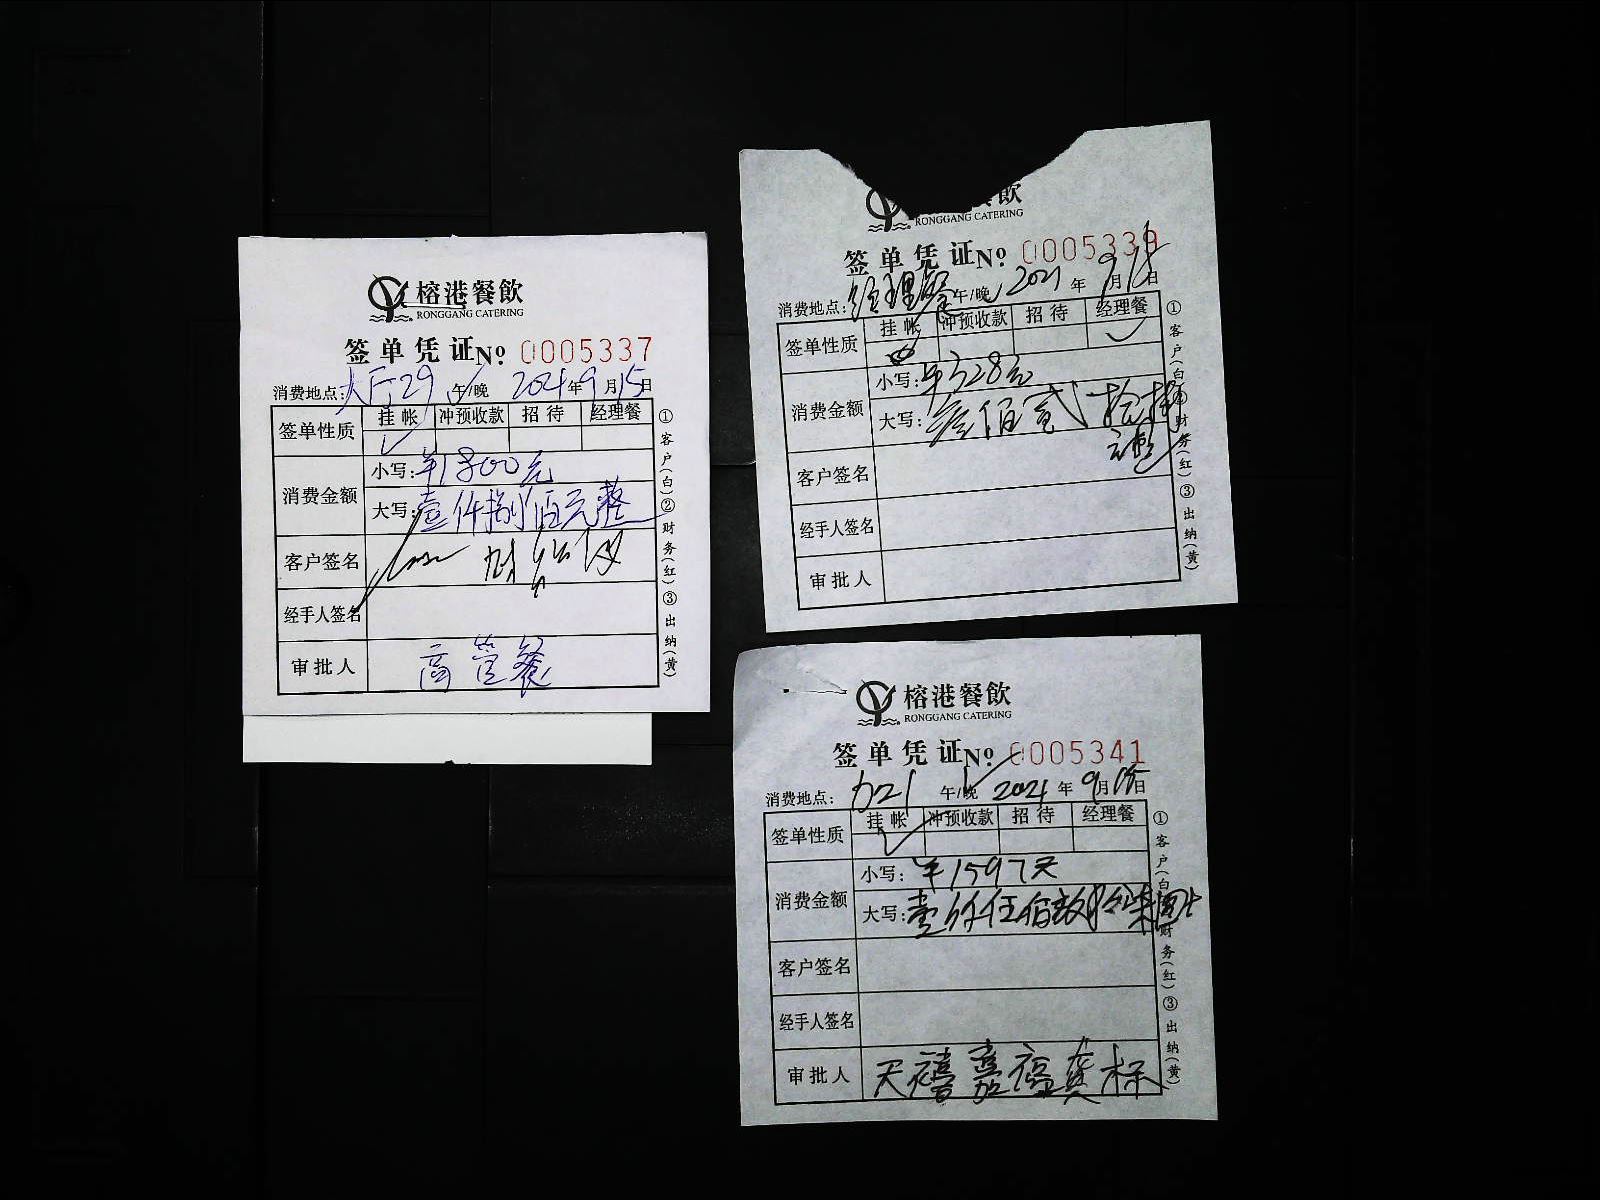 榕港餐飲
RONGGANG CATERING
签单凭证No 0005337
消费地点:大厅29 午/晚 2021年9月15日
签单性质 挂帐 冲预收款 招待 经理餐
消费金额 小写:¥1800元
大写:壹仟捌佰元整
客户签名
经手人签名
审批人 高管餐
①客户(白)②财务(红)③出纳(黄)
飲
RONGGANG CATERING
签单凭证No 0005339
消费地点:经理餐 午/晚 2021年9月15日
签单性质 挂帐 冲预收款 招待 经理餐
消费金额 小写:¥328元
大写:叁佰贰拾捌
元整
客户签名
经手人签名
审批人
①客户(白) 财务(红)③出纳(黄)
榕港餐飲
RONGGANG CATERING
签单凭证No 0005341
消费地点: 午/晚 2021年9月15日
签单性质 挂帐 冲预收款 招待 经理餐
消费金额 小写:¥1597元
大写:壹仟伍佰玖拾柒圆
客户签名
经手人签名
审批人 天禧嘉福龚标
①客户(白 财务(红)③出纳(黄)